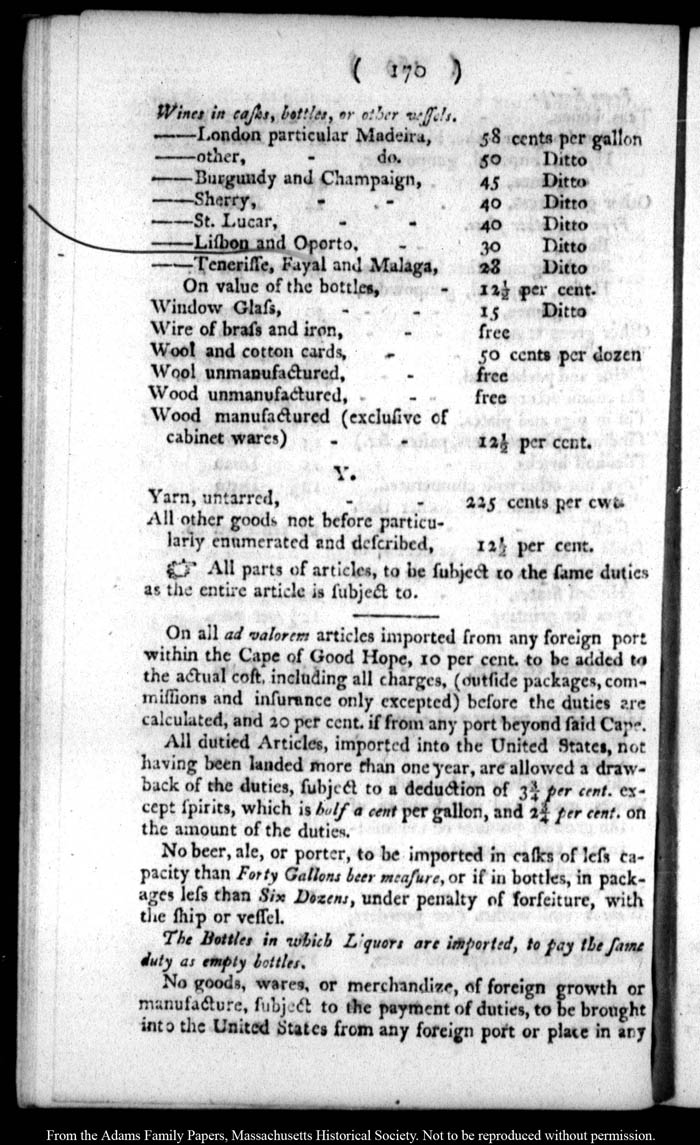 ( 170 )
Wines in caſks, bottles, or other veſſels.
——London particular Madeira, 58 cents per gallon
——other, - do. 50 Ditto
——Burgundy and Champaign, 45 Ditto
——Sherry, - - 40 Ditto
——St. Lucar, - - 40 Ditto
——Liſbon and Oporto, - - 30 Ditto
——Teneriffe, Fayal and Malaga, 28 Ditto
On value of the bottles, - 12½ per cent.
Window Glaſs, - - - 15 Ditto
Wire of braſs and iron, - free
Wool and cotton cards, - 50 cents per dozen
Wool unmanufactured, - free
Wood unmanufactured, - - - free
Wood manufactured (excluſive of
cabinet wares) - - 12½ per cent.
Y.
Yarn, untarred, - - 225 cents per cwt.
All other goods not before particu-
larly enumerated and deſcribed, 12½ per cent.
☞ All parts of articles, to be ſubject to the ſame duties
as the entire article is ſubject to.
On all ad valorem articles imported from any foreign port
within the Cape of Good Hope, 10 per cent. to be added to
the actual coſt, including all charges, (outſide packages, com-
miſſions and inſurance only excepted) before the duties are
calculated, and 20 per cent. if from any port beyond ſaid Cape.
All dutied Articles, imported into the United States, not
having been landed more than one year, are allowed a draw-
back of the duties, ſubject to a deduction of 3¾ per cent. ex-
cept ſpirits, which is half a cent per gallon, and 2¾ per cent. on
the amount of the duties.
No beer, ale, or porter, to be imported in caſks of leſs ca-
pacity than Forty Gallons beer meaſure, or if in bottles, in pack-
ages leſs than Six Dozens, under penalty of forfeiture, with
the ſhip or veſſel.
The Bottles in which Liquors are imported, to pay the ſame
duty as empty bottles.
No goods, wares, or merchandize, of foreign growth or
manufacture, ſubject to the payment of duties, to be brought
into the United States from any foreign port or place in any
From the Adams Family Papers, Massachusetts Historical Society. Not to be reproduced without permission.